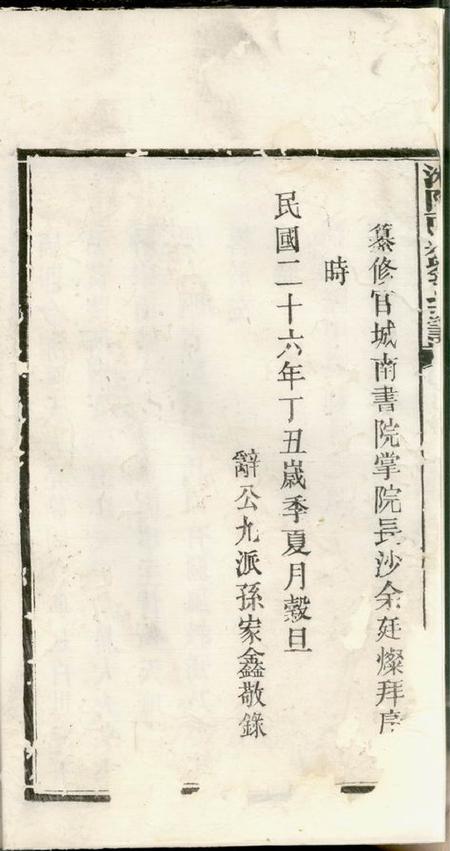 纂修官城南書院掌院長沙余廷燦拜序
時
民國二十六年丁丑歲季夏月穀旦
辭公九派孫家鑫敬錄